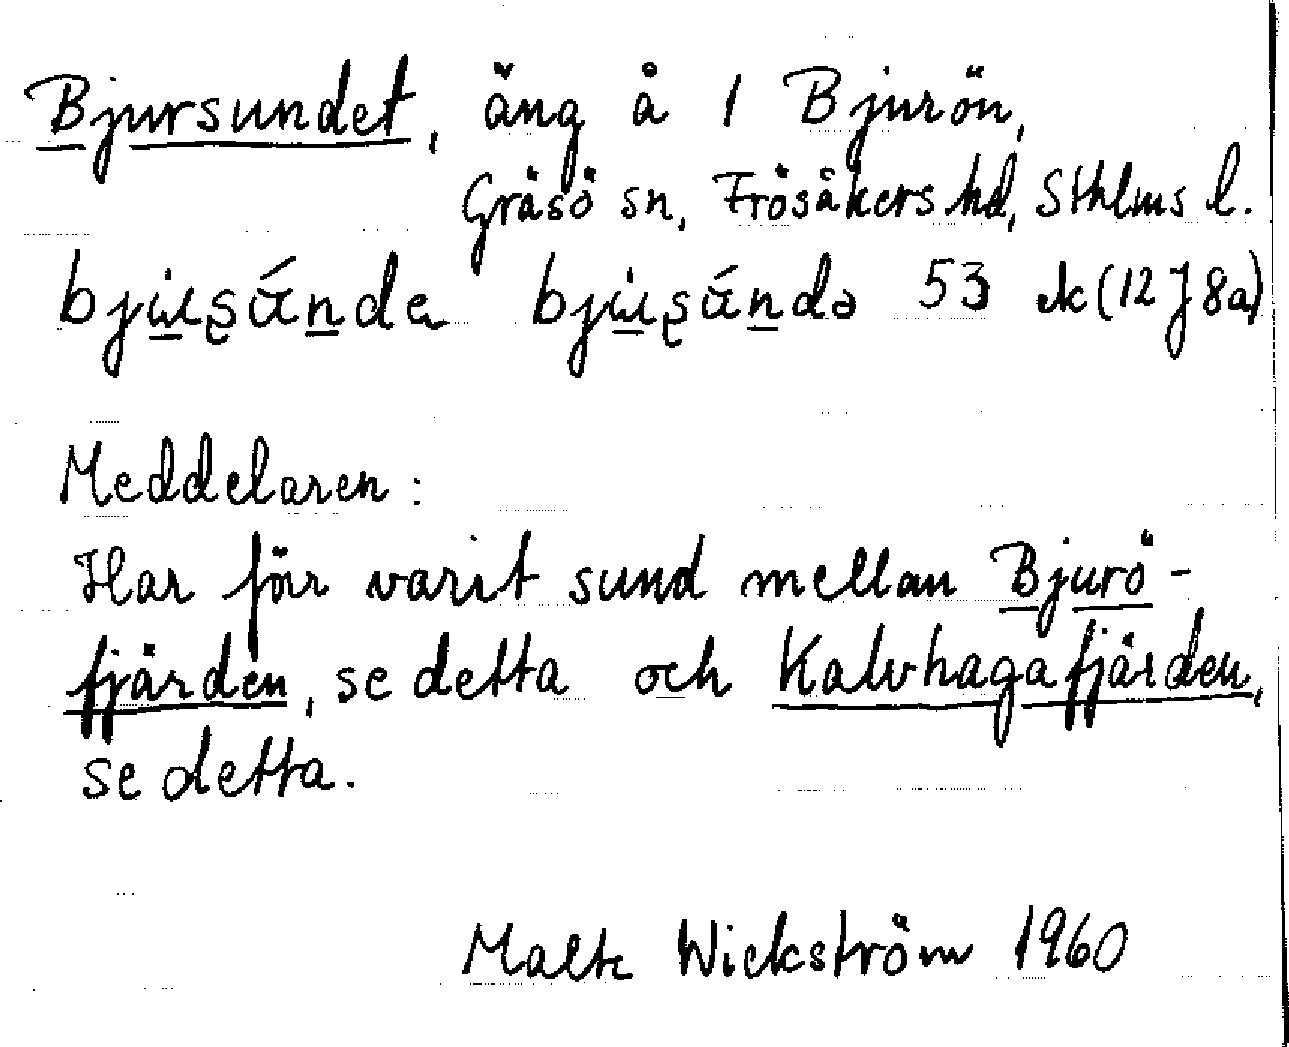 Bjursundet, äng å 1 Bjurön,
Gräsö sn, Frösåkers hd, Sthlms l.
53 ek (12 J 8a)
Meddelaren:
Har förr varit sund mellan Bjurö-
fjärden, se detta och Kalvhagafjärden,
se detta.
Malte Wickström 1960